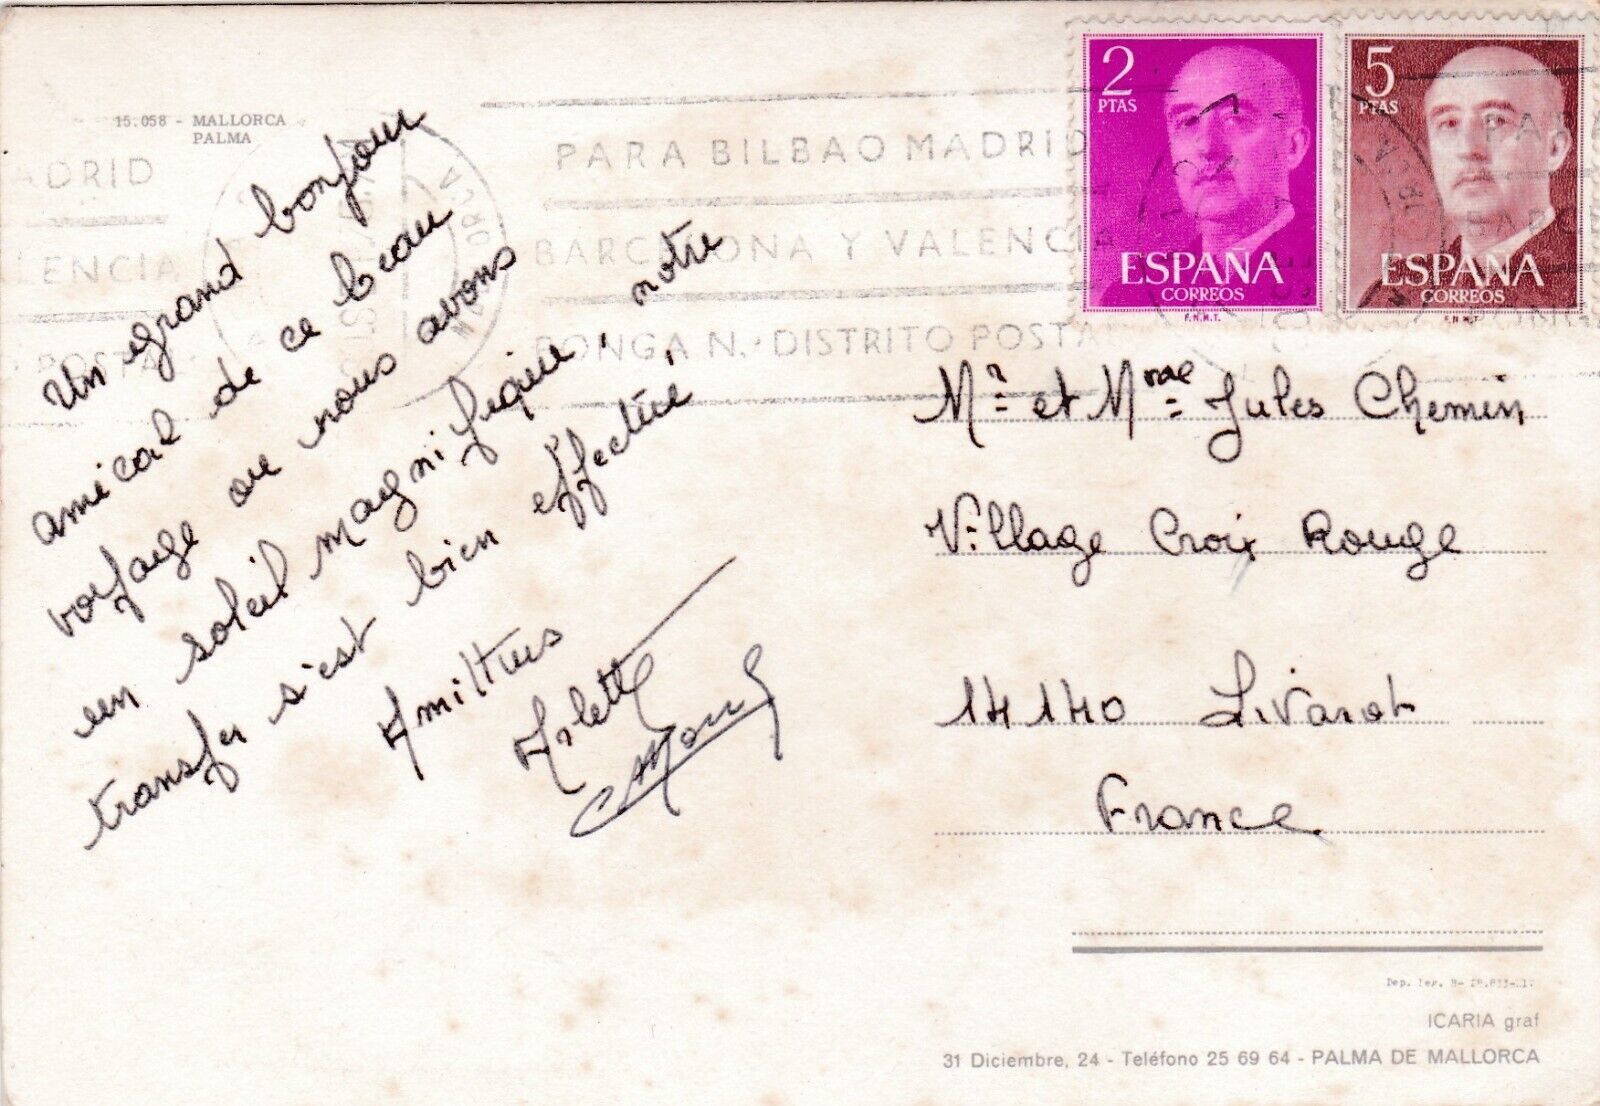 15.058 - MALLORCA
PALMA
ADRID
LENCIA
POSTAL
PARA BILBAO MADRID
BARCELONA Y VALENCIA
PONGA N.º DISTRITO POSTAL
2
PTAS
ESPAÑA
CORREOS
F.N.M.T.
5
PTAS
ESPAÑA
CORREOS
F.N.M.T.
Un grand bonjour
amical de ce beau
voyage ou nous avons
un soleil magnifique, notre
transfer s'est bien effectué,
Amitiés
Arlette
Mr et Mme Jules Chemin
Village Croix Rouge
14140 Livarot
France
ICARIA graf
31 Diciembre, 24 - Teléfono 25 69 64 - PALMA DE MALLORCA